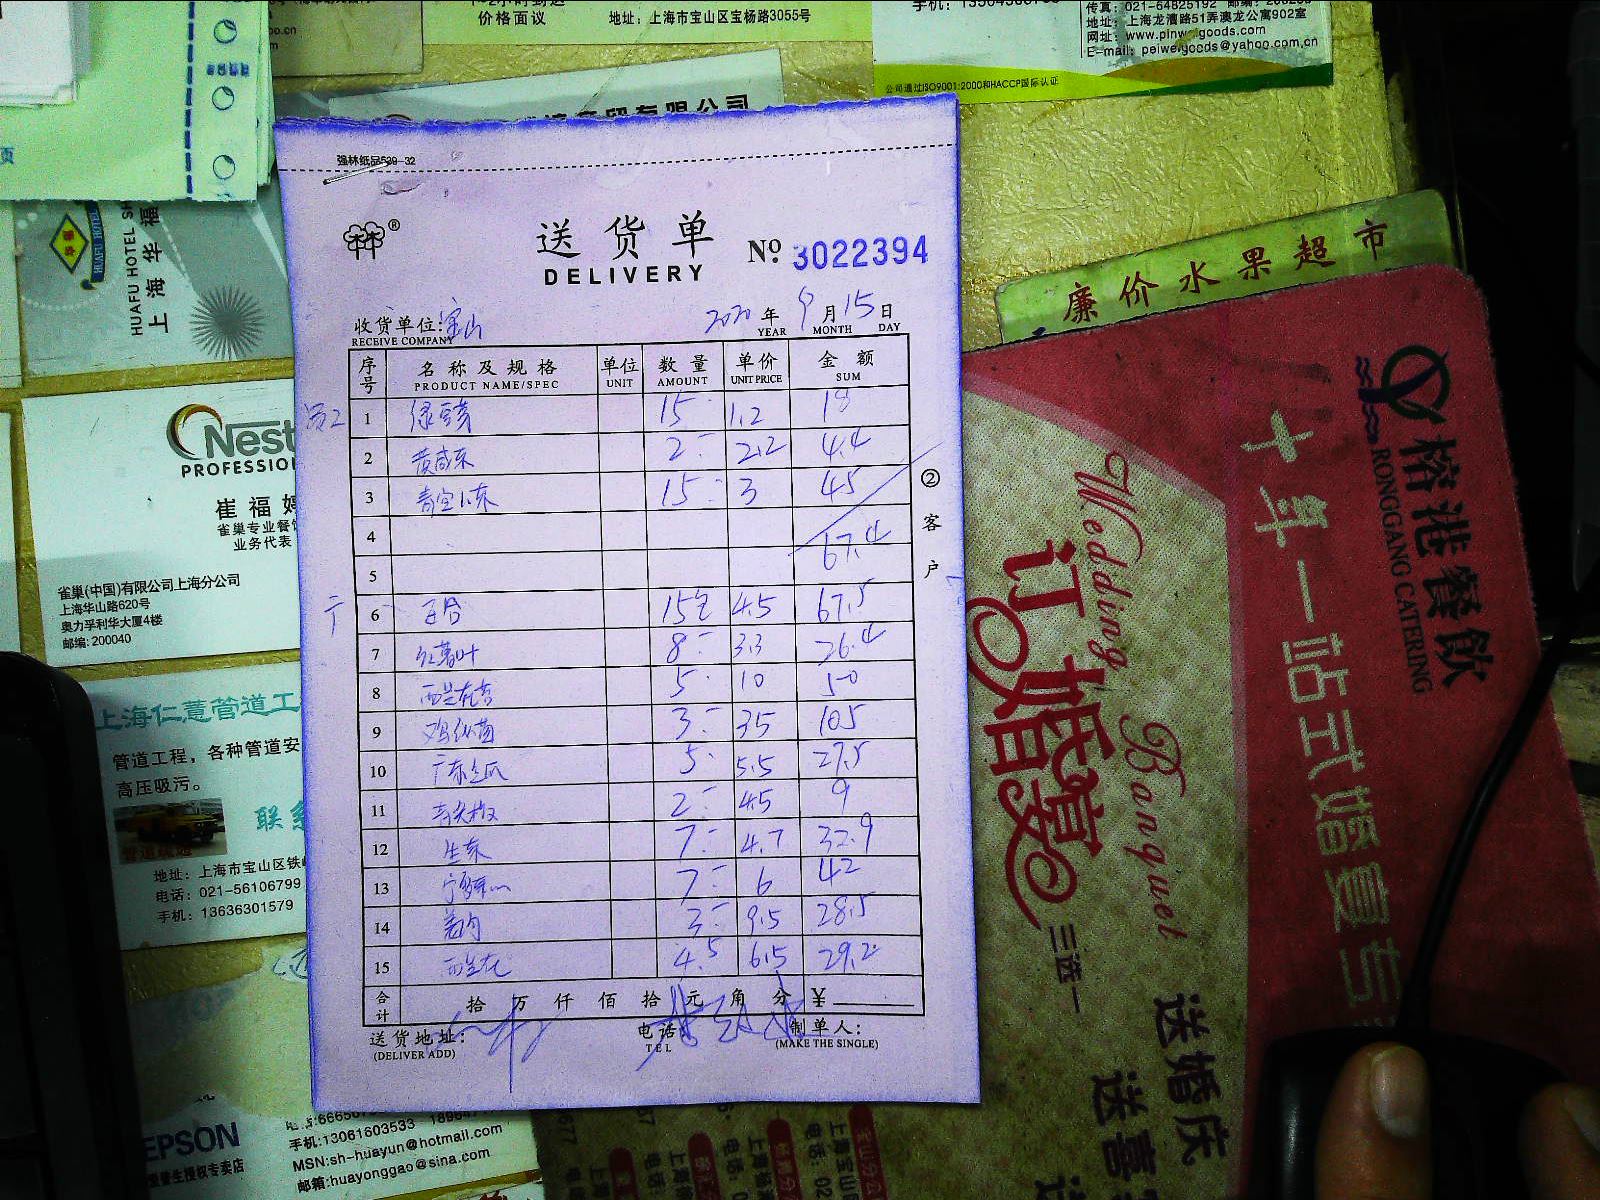 价格面议
地址：上海市宝山区宝杨路3055号
传真：021-64825192
地址：上海龙漕路51弄澳龙公寓902室
网址：www.pinweigoods.com
E-mail：peiweigoods@yahoo.com.cn
公司通过ISO9001:2000和HACCP国际认证
强林纸品529-32
送货单
DELIVERY
№ 3022394
收货单位：宝山
RECEIVE COMPANY
2020 年 9 月 15 日
YEAR MONTH DAY
序号 名称及规格 单位 数量 单价 金额
PRODUCT NAME/SPEC UNIT AMOUNT UNIT PRICE SUM
1 绿豆芽 15 1.2 18
2 黄咸菜 2 2.2 4.4
3 15 3 45
4 67.4
5
6 百合 15 4.5 67.5
7 红薯叶 8 3.3 26.4
8 5 10 50
9 鸡枞菌 3 35 105
10 广东丝瓜 5 5.5 27.5
11 青尖椒 2 4.5 9
12 生菜 7 4.7 32.9
13 7 6 42
14 3 9.5 28.5
15 西兰花 4.5 6.5 29.2
合计 拾 万 仟 佰 拾 元 角 分 ¥
送货地址：
(DELIVER ADD)
电话：
TEL
制单人：
(MAKE THE SINGLE)
②客户
HUAFU HOTEL
上海华福
Nest
PROFESSIO
崔福
雀巢专业餐
业务代表
雀巢(中国)有限公司上海分公司
上海华山路620号
奥力孚利华大厦4楼
邮编：200040
上海仁慧管道工
管道工程，各种管道安
高压吸污。
联系
地址：上海市宝山区铁
电话：021-56106799
手机：13636301579
EPSON
授权专卖店
手机:13061603533
MSN:sh-huayun@hotmail.com
邮箱:huayonggao@sina.com
廉价水果超市
榕港餐飲
RONGGANG CATERING
十年一站式婚宴专
Wedding
订婚宴
Banquet
三选一
送婚庆
送喜